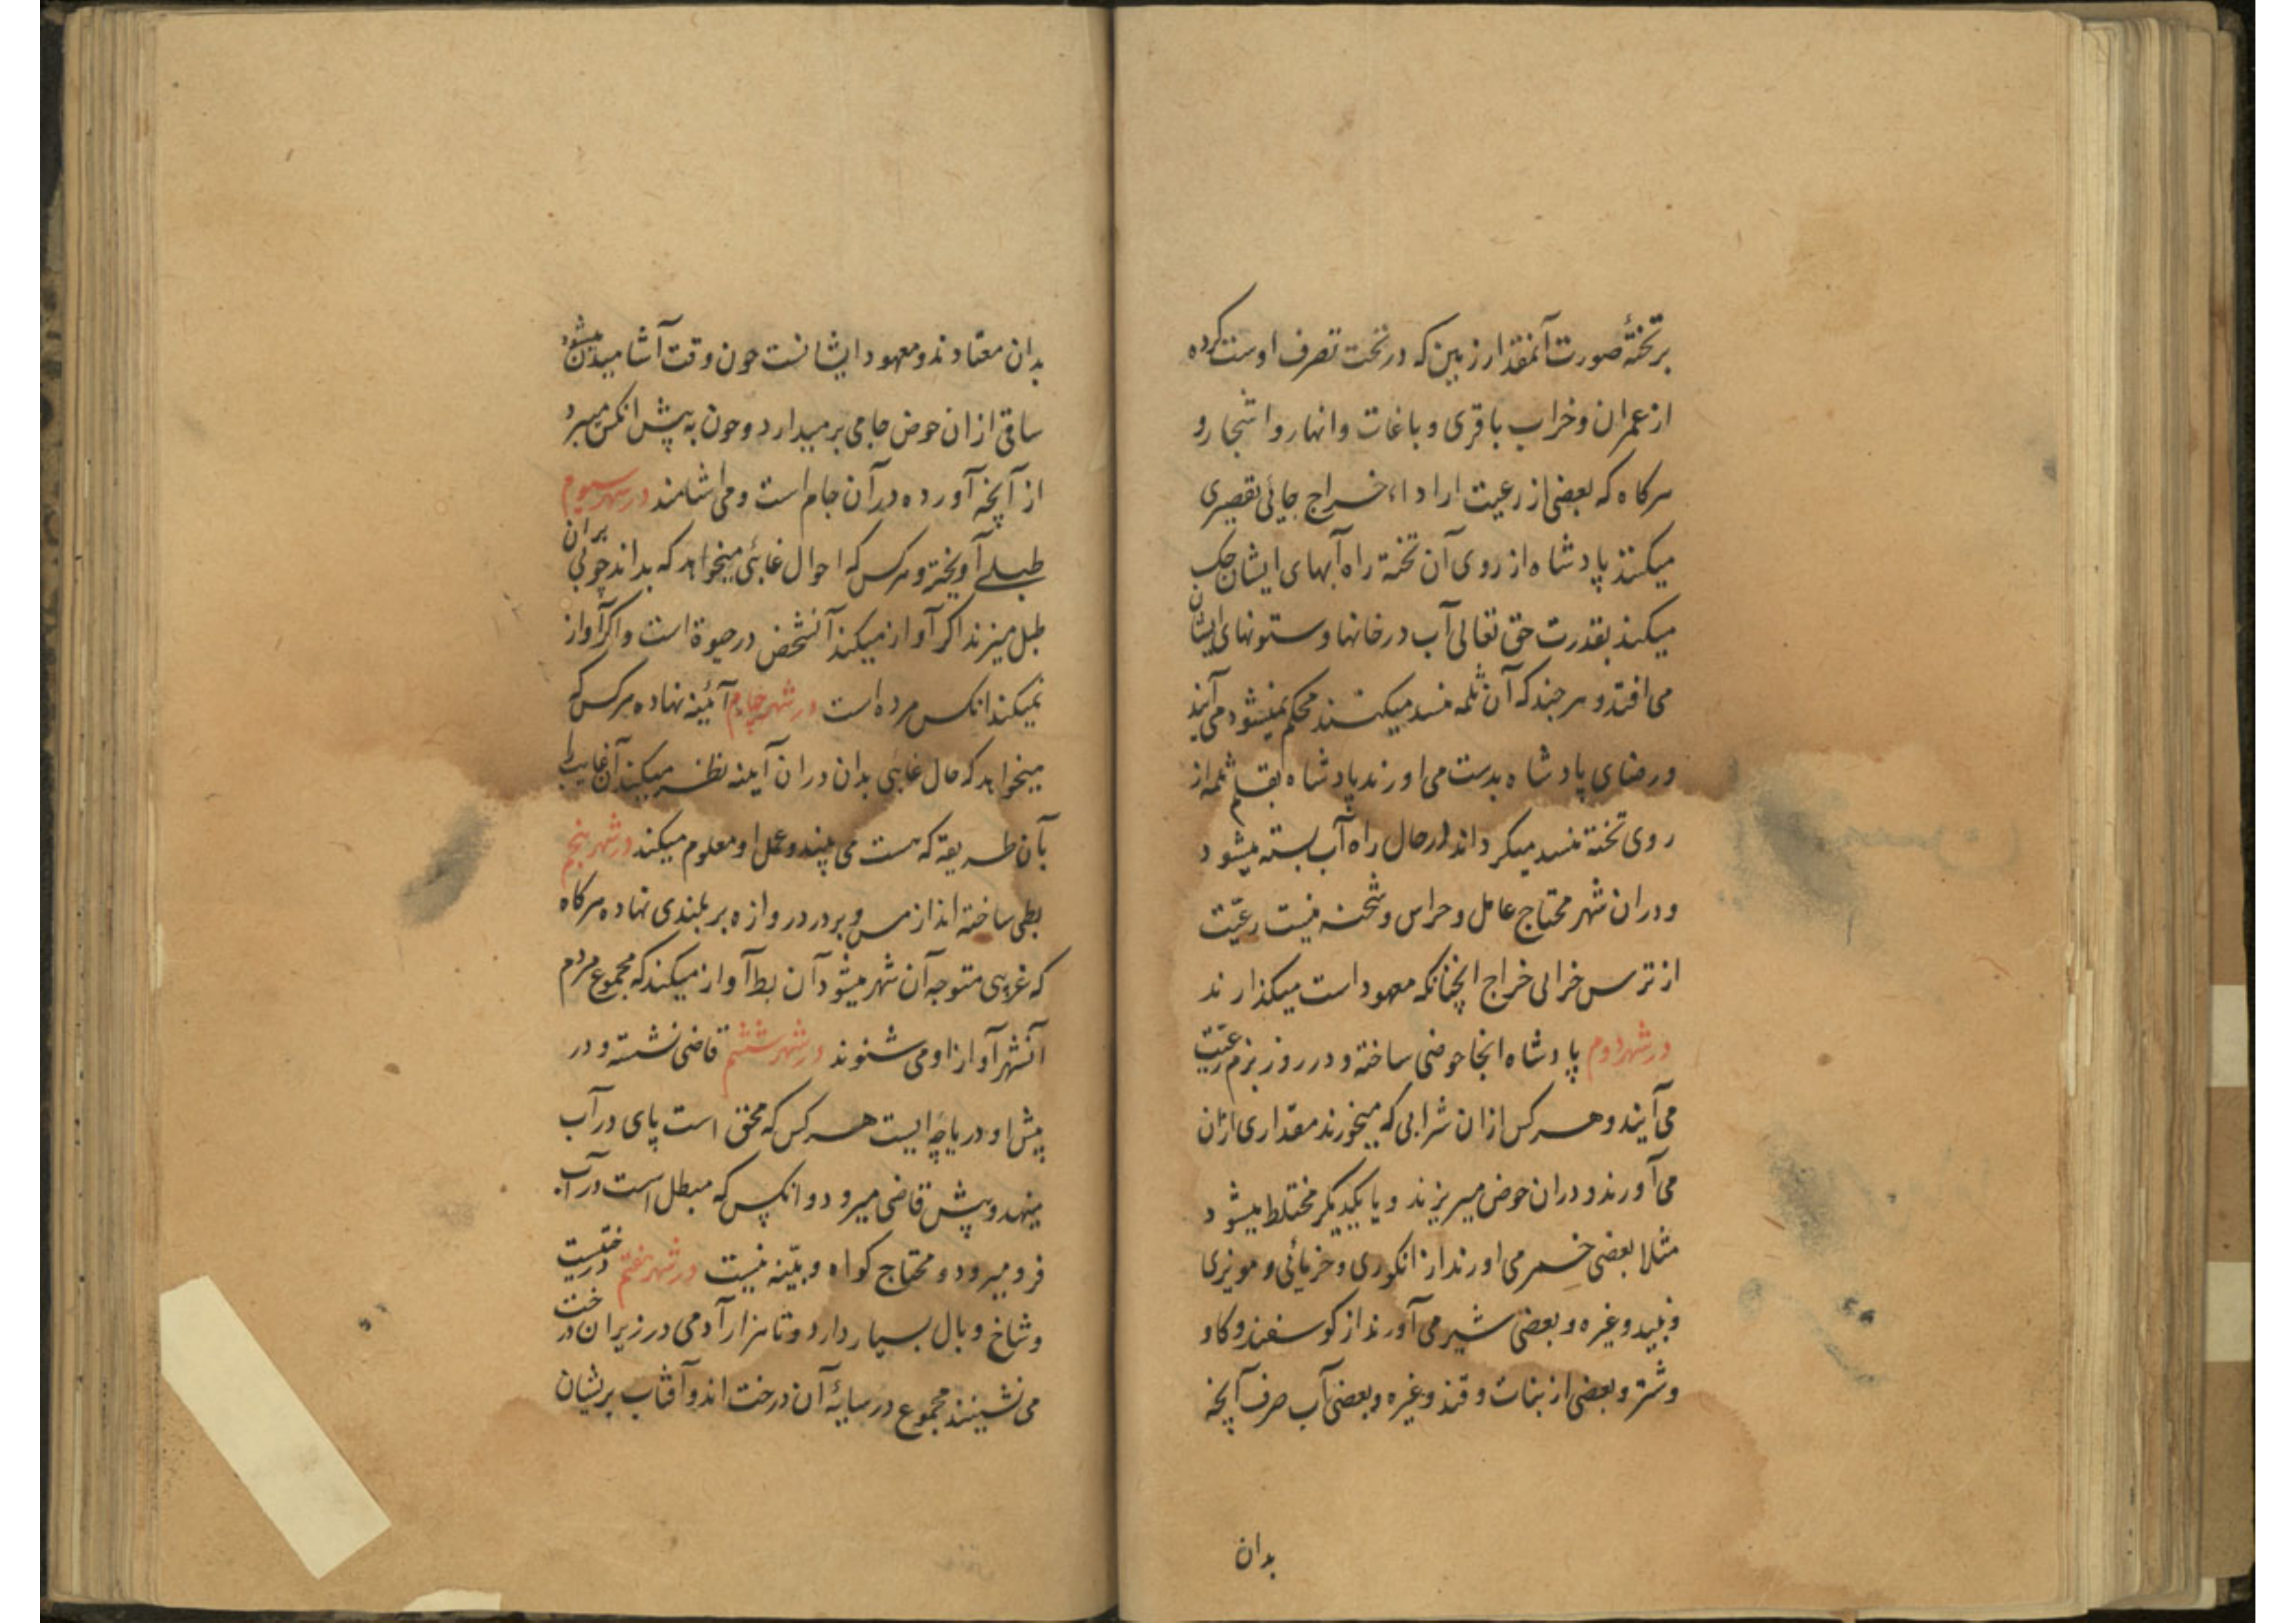 بر تختهٔ صورت آنمقدار زمین که در تحت تصرف اوست کرده
از عمران و خراب باقری و باغات و انهار و اشجار و
هرکاه که بعضی از رعیت ارا داء خراج جائی تقصیری
میکنند پادشاه از روی آن تخته راه آبهای ایشان حک
میکند بقدرت حق تعالی آب در خانها و ستونهای ایشان
می افتد و هر جند که آن ثلمه منسد میکنند محکم نمیشود می آیند
و رضای پادشاه بدست می اورند پادشاه بقلم ثلمه از
روی تخته منسد میکرداند در حال راه آب بسته میشود
و دران شهر محتاج عامل و حراس و شحنه نیست رعیّت
از ترس خرابی خراج انچنانکه معهود است میکذارند
در شهر دوم پادشاه انجا حوضی ساخته و در روز بزم رعیّت
می آیند و هر کس ازان شرابی که میخورند مقداری ازان
می آورند و دران حوض میریزند و با یکدیکر مختلط میشود
مثلا بعضی خمر می اورند از انکوری و خرمائی و مویزی
و نبید و غیره و بعضی شیر می آورند از کوسفند و کاو
و شتر و بعضی از نبات و قند و غیره و بعضی آب صرف آنچه
بدان
بدان معتادند و معهود ایشانست جون وقت آشامیدن میشود
ساقی ازان حوض جامی بر میدارد و جون به پیش انکس میبرد
از آنچه آورده در آن جام است و می اشامند در شهر سیوم
طبلے آویخته و هر کس که احوال غائبی میخواهد که بداند چوبی بران
طبل میزند اکر آواز میکند آنشخص در حیوة است و اکر آواز
نمیکند انکس مرده است در شهر چهارم آئینه نهاده هر کس که
میخواهد که حال غائبی بدان دران آینه نظر میکند آن غایب را
بآن طریقه که هست می بیند و عمل او معلوم میکند در شهر پنجم
بطی ساخته اند از مس و بر در دروازه بر بلندی نهاده هرکاه
که غریبی متوجه آن شهر میشود آن بط آواز میکند که مجموع مردم
آنشهر آواز او می شنوند در شهر ششم قاضی نشسته و در
پیش او دریاچه ایست هر کس که محق است پای در آب
مینهد و پیش قاضی میرود و انکس که مبطل است در آب
فرو میرود و محتاج کواه و بیّنه نیست در شهر هفتم درختیست
و شاخ و بال بسیار دارد و تا هزار آدمی در زیر ان درخت
می نشینند مجموع در سایهٔ آن درخت اند و آفتاب بریشان